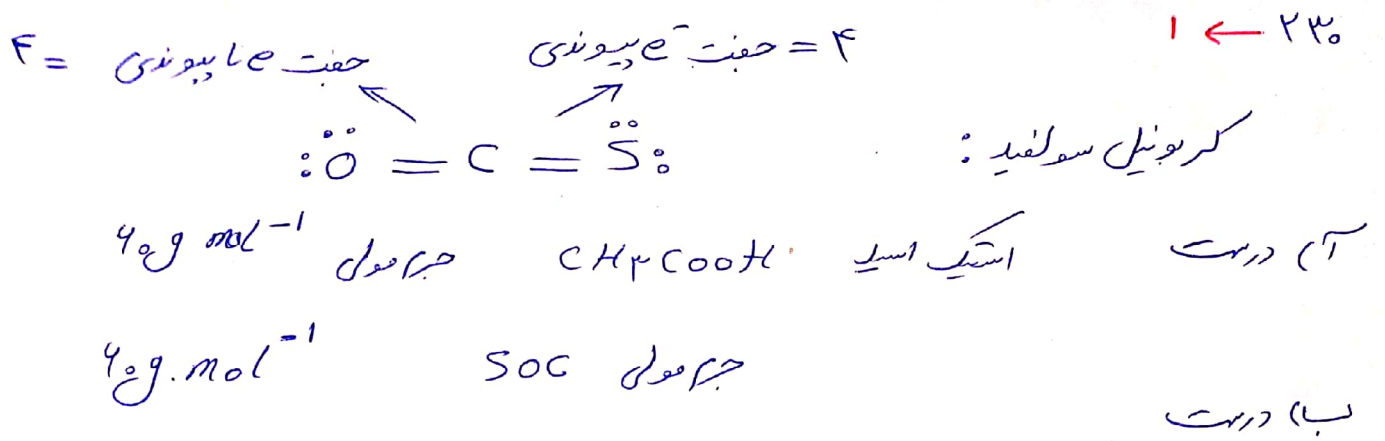 ۲۳۰ → ۱
جفت e⁻ پیوندی = ۴
جفت e ناپیوندی = ۴
کربونیل سولفید :
:Ö = C = S̈:
آ) درست استیک اسید CH۳COOH جرم مولی ۶۰g mol⁻¹
جرم مولی SOC ۶۰g.mol⁻¹
ب) درست